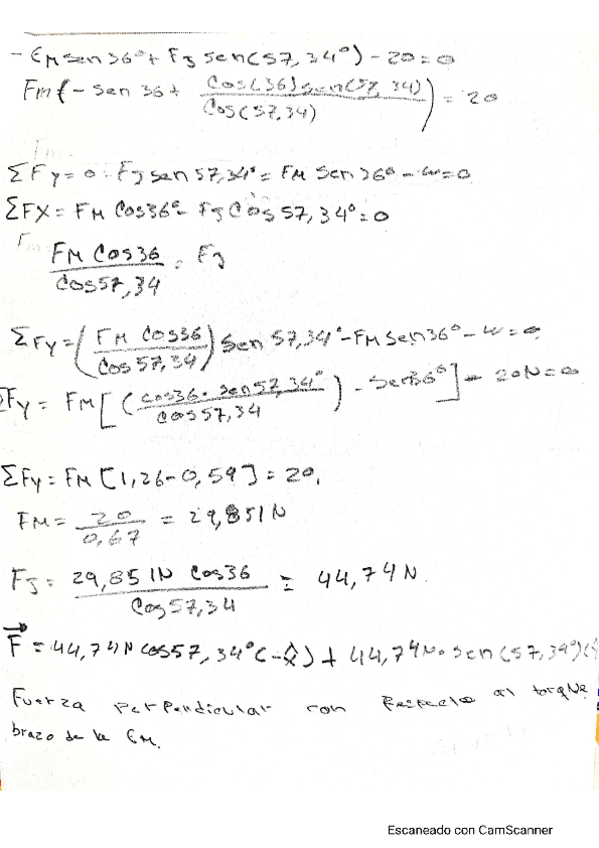 - FM sen 36° + FJ sen(57,34°) - 20 = 0
Fm (- sen 36 + Cos(36) sen(57,34) / Cos(57,34)) = 20
ΣFy = 0 = FJ sen 57,34° = FM Sen 36° - w = 0
ΣFX = FM Cos36° - FJ Cos 57,34° = 0
FM Cos36 / Cos57,34 = FJ
ΣFy = (FM Cos36 / Cos 57,34) Sen 57,34° - FM Sen 36° - w = 0
ΣFy = FM [ (cos36 · sen57,34° / cos57,34) - Sen36° ] - 20N = 0
ΣFy = FM [1,26 - 0,59] = 20.
FM = 20 / 0,67 = 29,851 N
FJ = 29,851N Cos36 / Cos57,34 = 44,74 N.
F = 44,74N cos57,34° (-x̂) + 44,74N · sen(57,34°)(
Fuerza perpendicular con Respecto al torque
brazo de la FM.
Escaneado con CamScanner